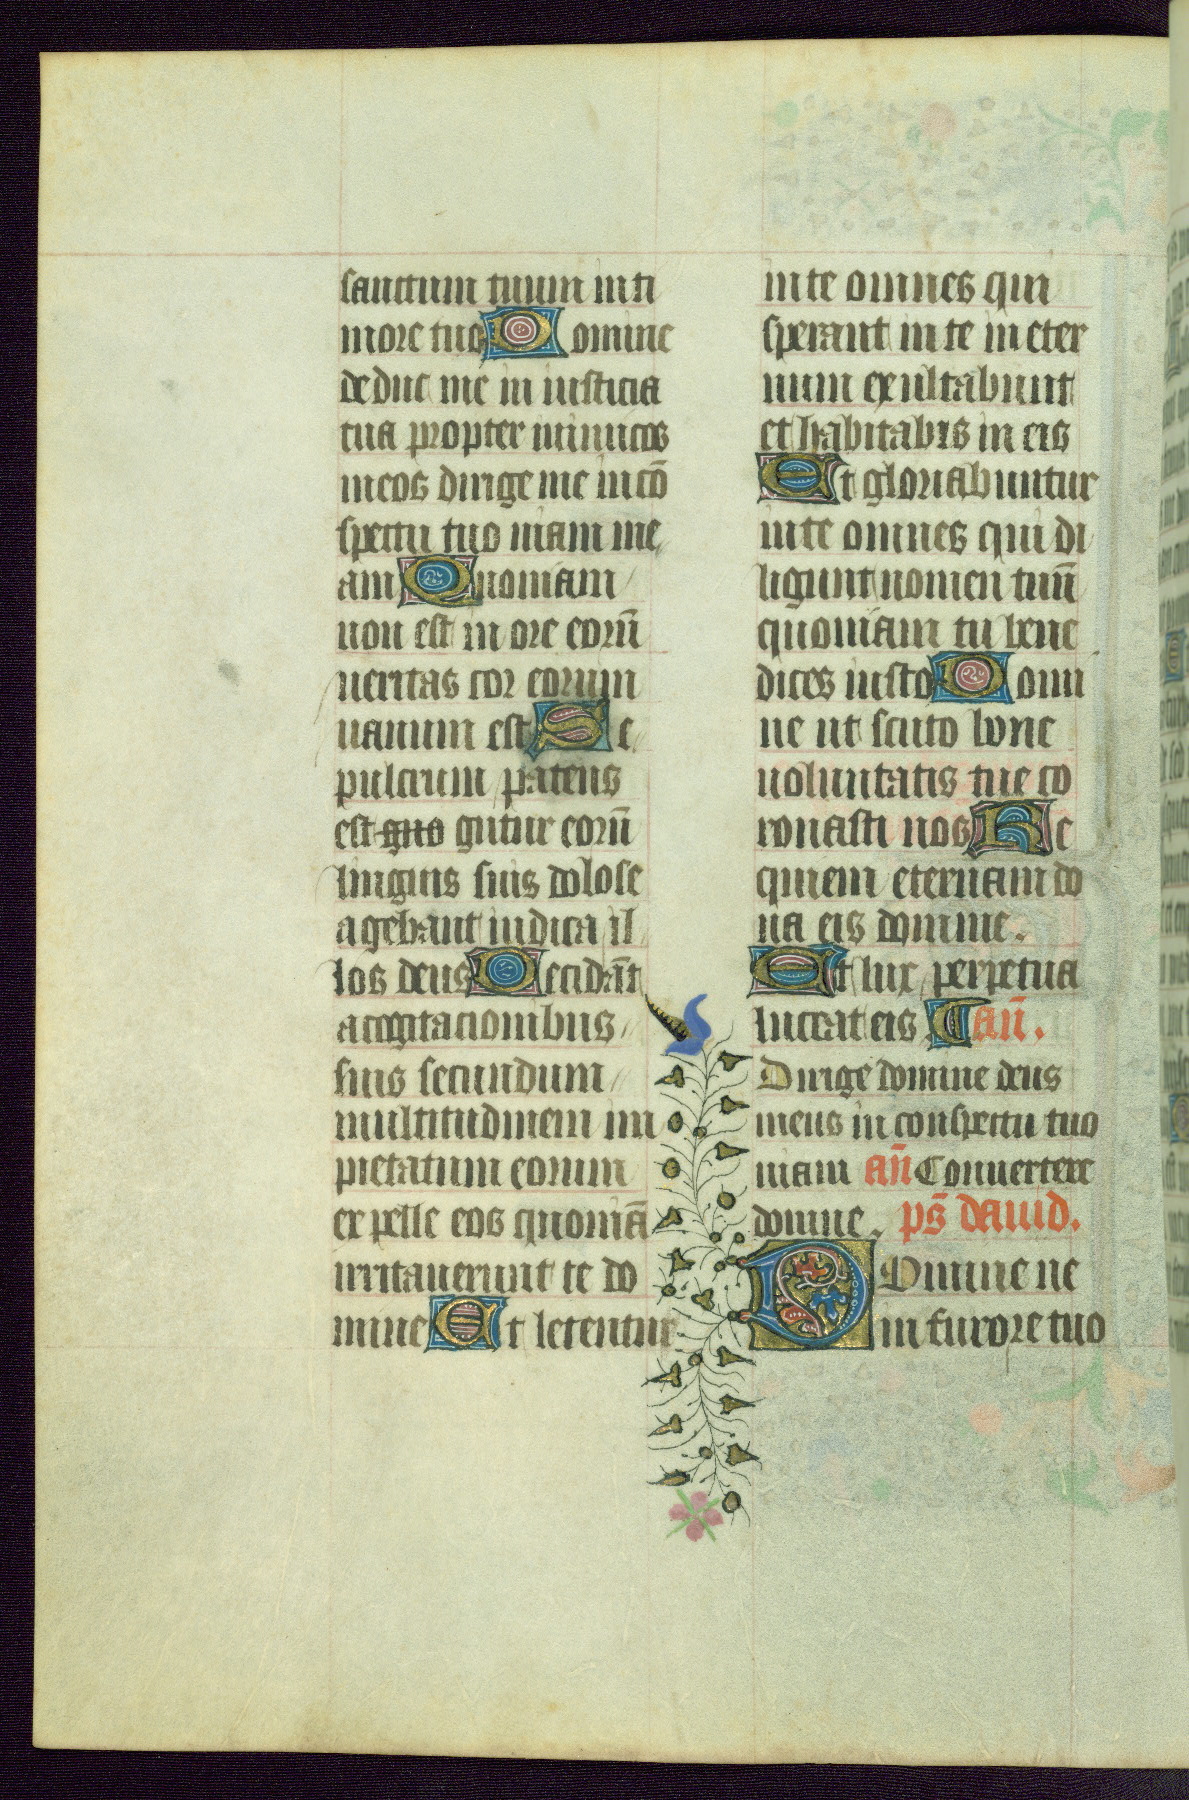 sanctum tuum in ti
more tuo Domine
deduc me in iusticia
tua propter inimicos
meos dirige me in cō
spectu tuo uiam me
am Quoniam
non est in ore eorū
ueritas cor eorum
uanum est Se
pulcrum patens
est quo gutur eorū
linguis suis dolose
agebant iudica il
los deus Decidāt
a cogitacionibus
suis secundum
multitudinem im
pietatum eorum
expelle eos quoniā
irritauerunt te do
mine Et letentur
in te omnes qui
sperant in te in eter
num exultabunt
et habitabis in eis
Et gloriabuntur
in te omnes qui di
ligunt nomen tuū
quoniam tu bene
dices iusto Domi
ne ut scuto bone
uoluntatis tue co
ronasti nos Re
quiem eternam do
na eis domine.
Et lux perpetua
luceat eis. añ.
Dirige domine deus
meus in conspectu tuo
uiam añ Conuertere
domine. ps̄ dauid.
Domine ne
in furore tuo